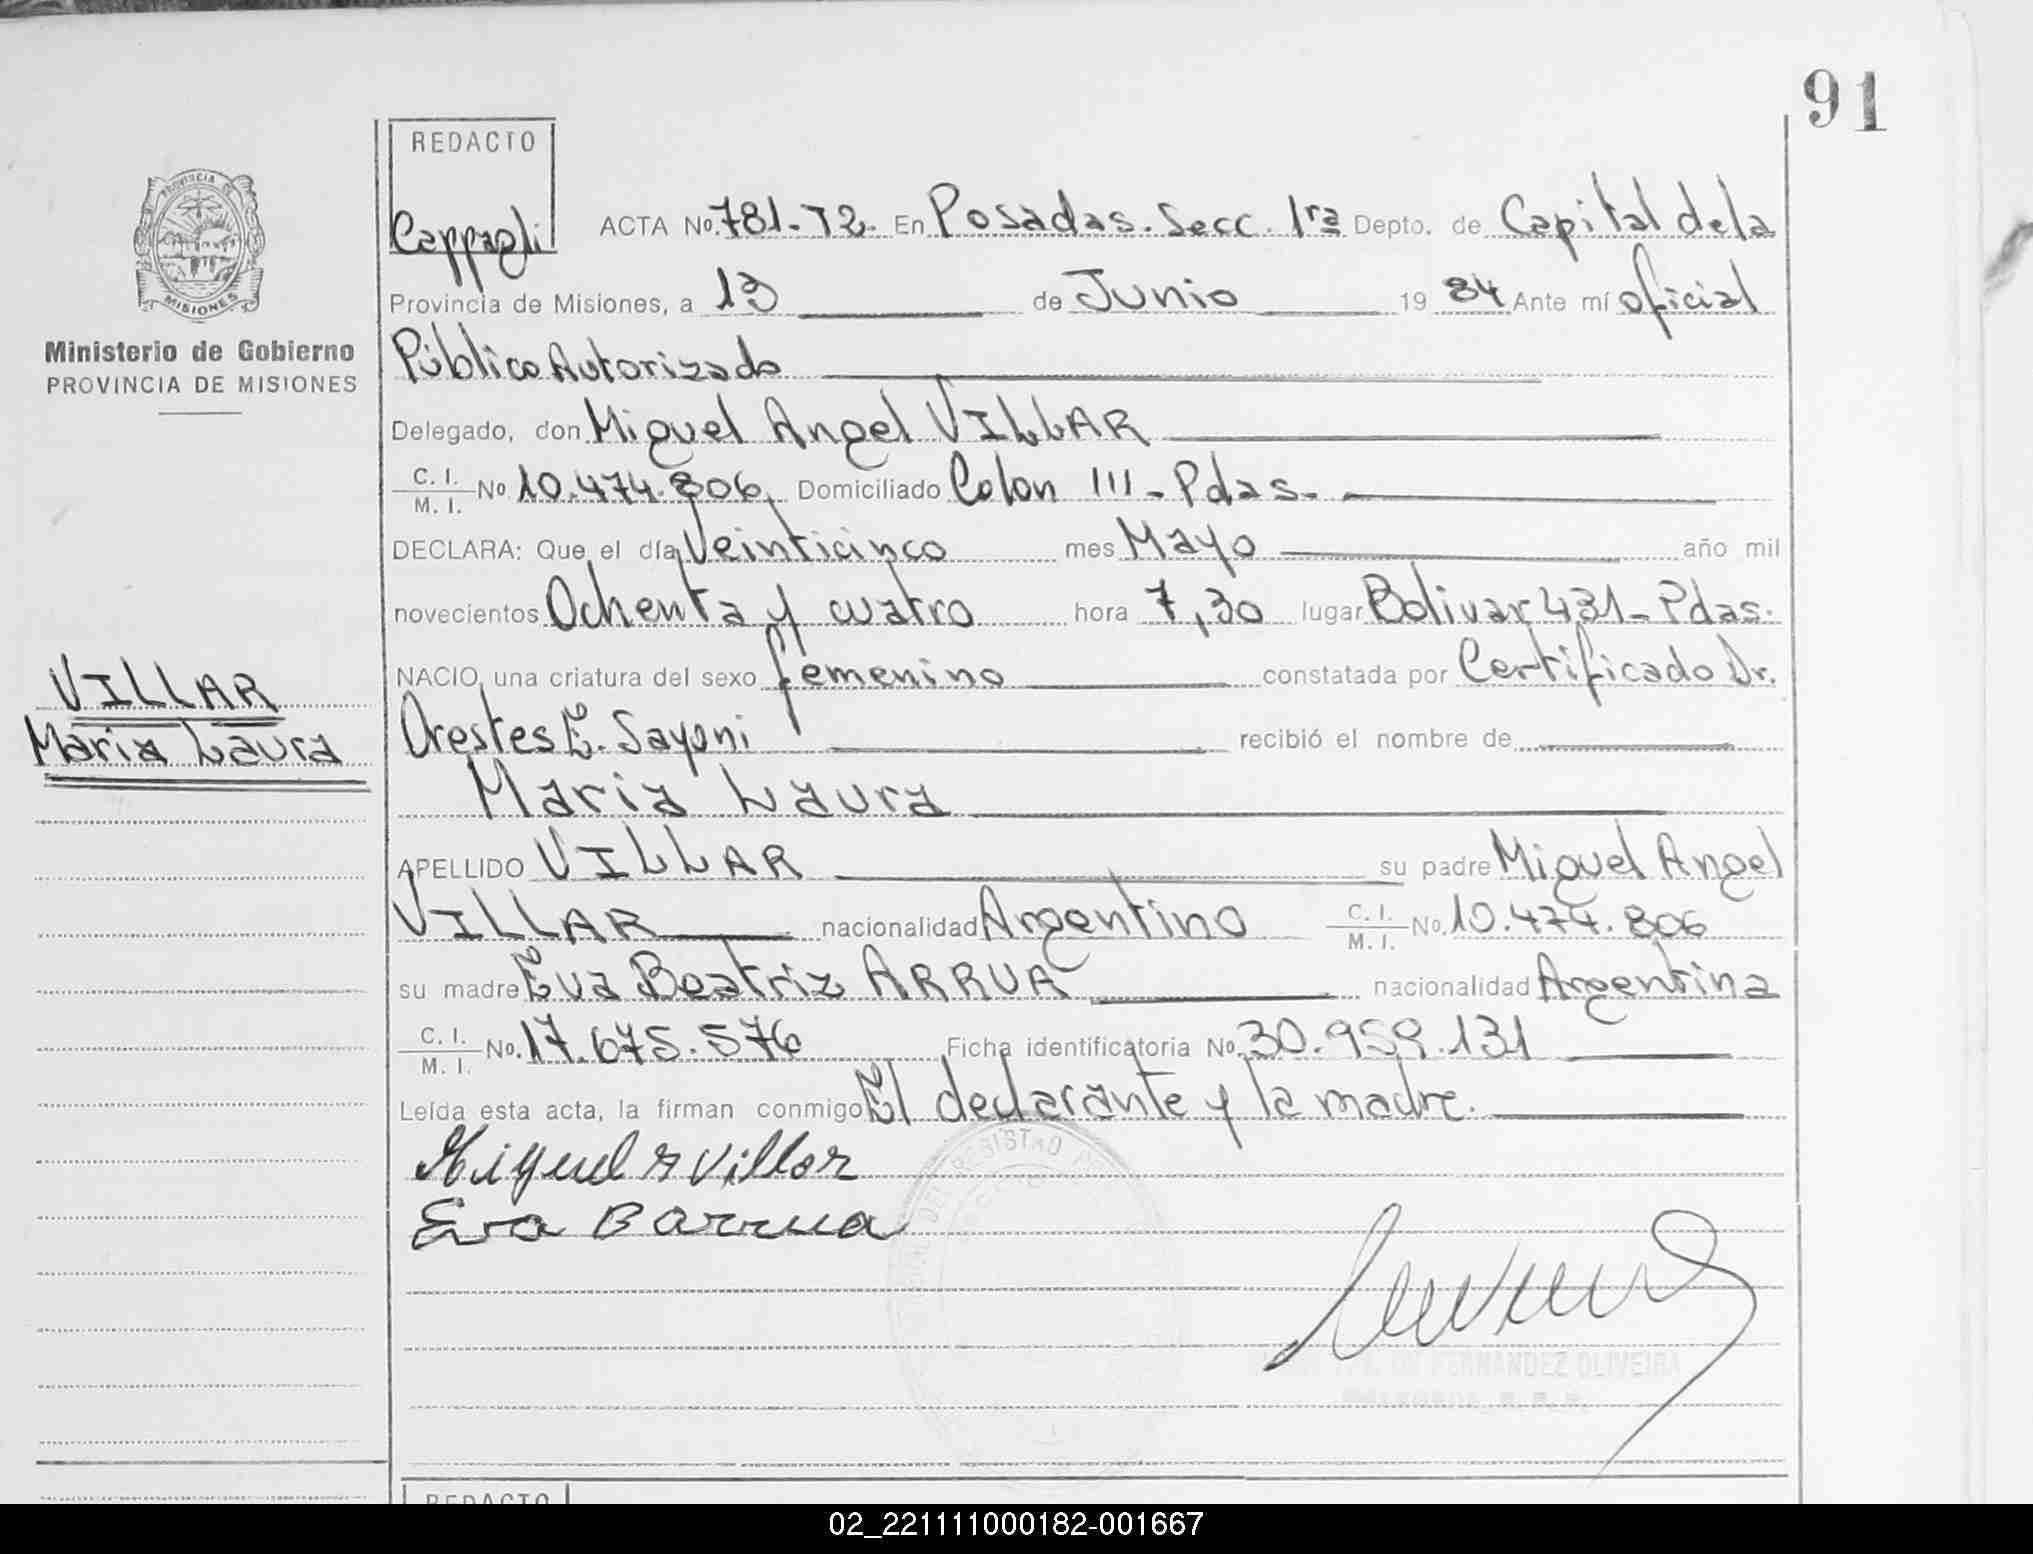 91
REDACTO
Cappagli
ACTA No. 781-T2- En Posadas. Secc. 1ra Depto. de Capital de la
Provincia de Misiones, a 13 de Junio 1984 Ante mí oficial
Público Autorizado
Delegado, don Miguel Angel VILLAR
C. I. / M. I. No 10.474.806, Domiciliado Colon 111 - Pdas.
DECLARA: Que el día Veinticinco mes Mayo año mil
novecientos Ochenta y cuatro hora 7,30 lugar Bolivar 431- Pdas.
NACIO, una criatura del sexo femenino constatada por Certificado Dr.
Orestes E. recibió el nombre de
Maria Laura
APELLIDO VILLAR su padre Miguel Angel
VILLAR nacionalidad Argentino C. I. / M. I. No. 10.474.806
su madre Eva Beatriz ARRUA nacionalidad Argentina
C. I. / M. I. No. 17.675.576 Ficha identificatoria No. 30.959.131
Leída esta acta, la firman conmigo El declarante y la madre.
Miguel A Villar
Eva B Arrua
FERNANDEZ OLIVEIRA
REDACTO
PROVINCIA DE
MISIONES
Ministerio de Gobierno
PROVINCIA DE MISIONES
VILLAR
Maria Laura
02_221111000182-001667